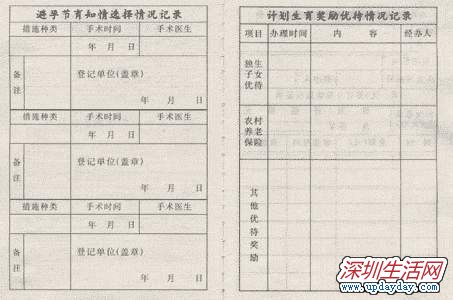 避孕节育知情选择情况记录
措施种类 手术时间 手术医生
年 月 日
备注 登记单位(盖章)
年 月 日
措施种类 手术时间 手术医生
年 月 日
备注 登记单位(盖章)
年 月 日
措施种类 手术时间 手术医生
年 月 日
备注 登记单位(盖章)
年 月 日
计划生育奖励优待情况记录
项目 办理时间 内 容 经办人
独生
子女
优待
农村
养老
保险
其他优待奖励
深圳生活网
www.updayday.com